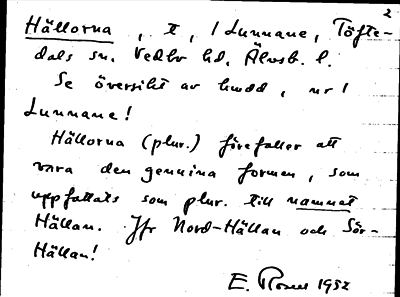 2
Hällorna, t, i Lunnane, Töfte-
dals sn. Vedbo hd. Älvsb. l.
Se översikt av hwdd, nr 1
Lunnane!
Hällorna (plur.) förefaller att
vara den genuina formen, som
uppfattats som plur. till namnet
Hällan. Jfr Nord-Hällan och Sör-
Hällan!
E. 1952